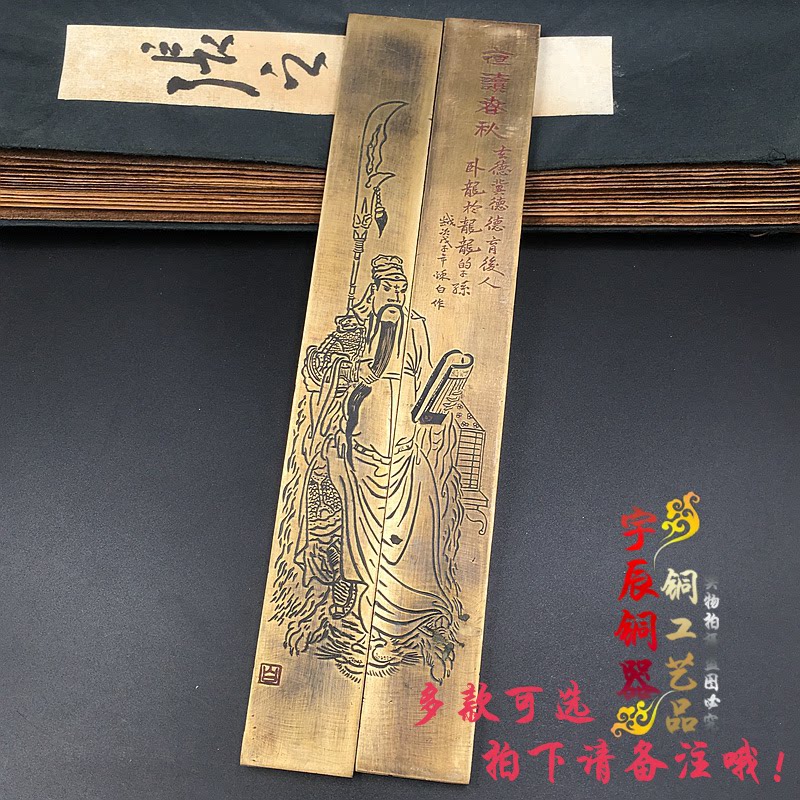 夜讀春秋
玄德堂德德育後人
卧龍於龍龍的子孫
歲次戊子年陳白作
宇辰铜器
铜工艺品
多款可选
拍下请备注哦！